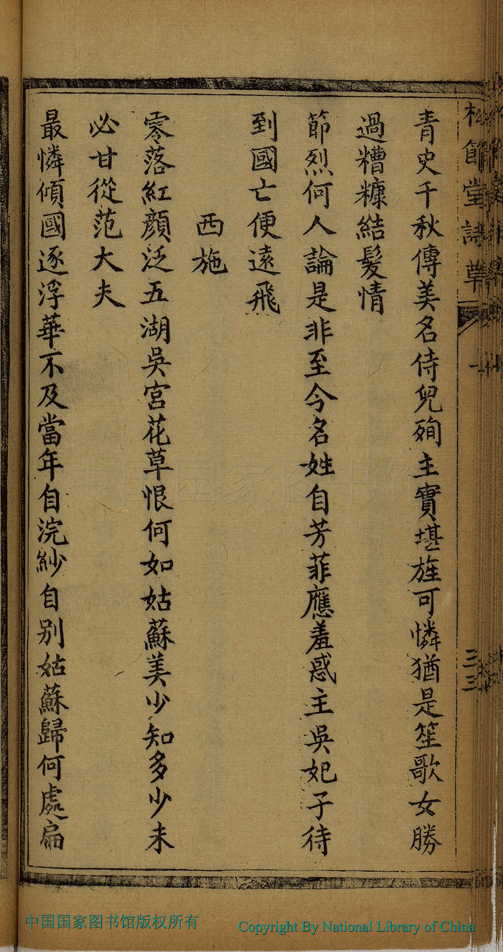 松節堂詩草
三三
青史千秋傳美名侍兒殉主實堪旌可憐猶是笙歌女勝
過糟糠結髮情
節烈何人論是非至今名姓自芳菲應羞惑主吳妃子待
到國亡便遠飛
西施
零落紅顔泛五湖吳宮花草恨何如姑蘇美少知多少未
必甘從范大夫
最憐傾國逐浮華不及當年自浣紗自别姑蘇歸何處扁
中国国家图书馆版权所有
Copyright By National Library of China